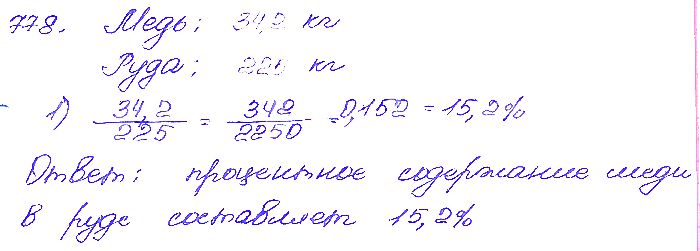 778. Медь: 34,2 кг
Руда: 225 кг
1) 34,2/225 = 342/2250 = 0,152 = 15,2%
Ответ: процентное содержание меди
в руде составляет 15,2%